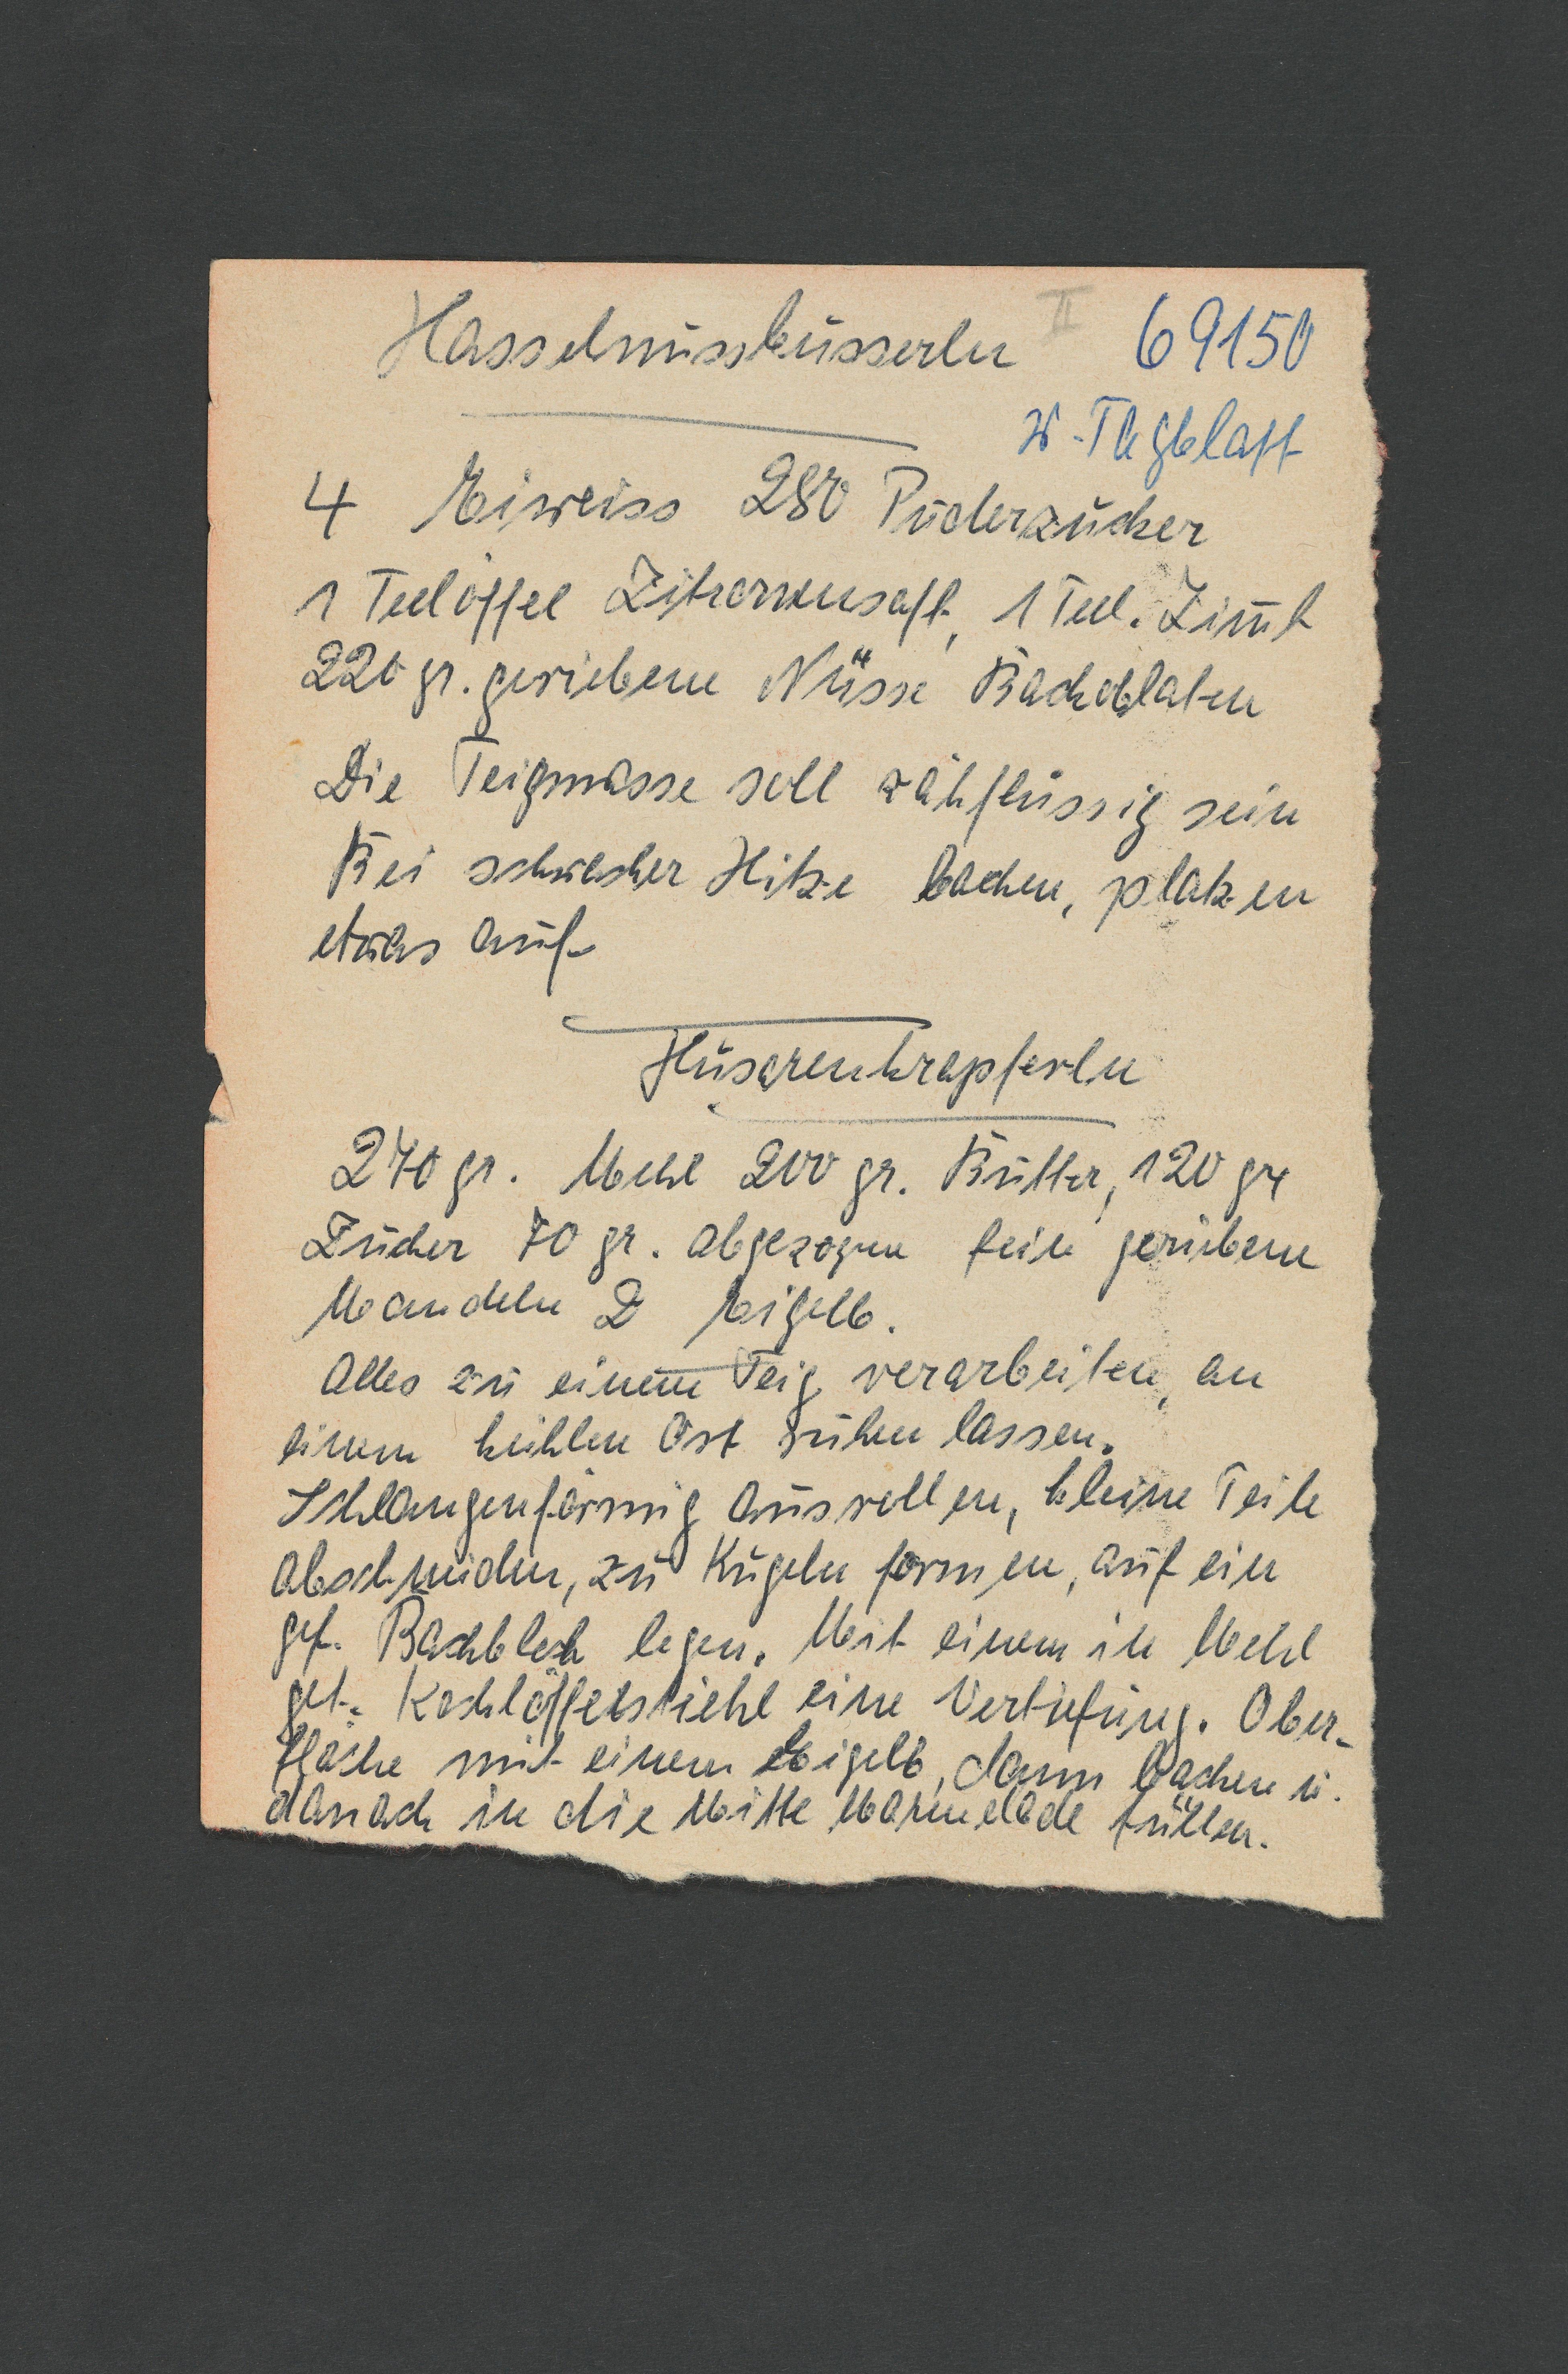 Hasselnussbusserln II 69150
W-Tagblatt
4 Eiweiss 280 Puderzucker
1 Teelöffel Zitronensaft, 1 Teel. Zimt
220 gr. geriebene Nüsse Backoblaten
Die Teigmasse soll zähflüssig sein
Bei schwacher Hitze backen, platzen
etwas auf.
Husarenkrapferln
270 gr. Mehl 200 gr. Butter, 120 gr
Zucker 70 gr. abgezogen fein geriebene
Mandeln 2 Eigelb.
Alles zu einem Teig verarbeiten, an
einem kühlen Ort ruhen lassen.
Schlangenförmig ausrollen, kleine Teile
abschneiden, zu Kugeln formen, auf ein
gef. Backblech legen. Mit einem in Mehl
get. Kochlöffelstiehl eine Vertiefung. Ober-
fläche mit einem Eigelb, dann backen u.
danach in die Mitte Marmelade füllen.